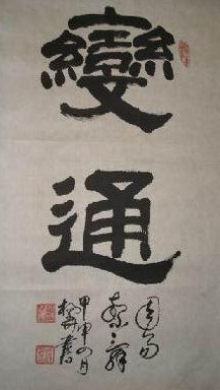 變
通
周易
繫辭
甲申四月
書